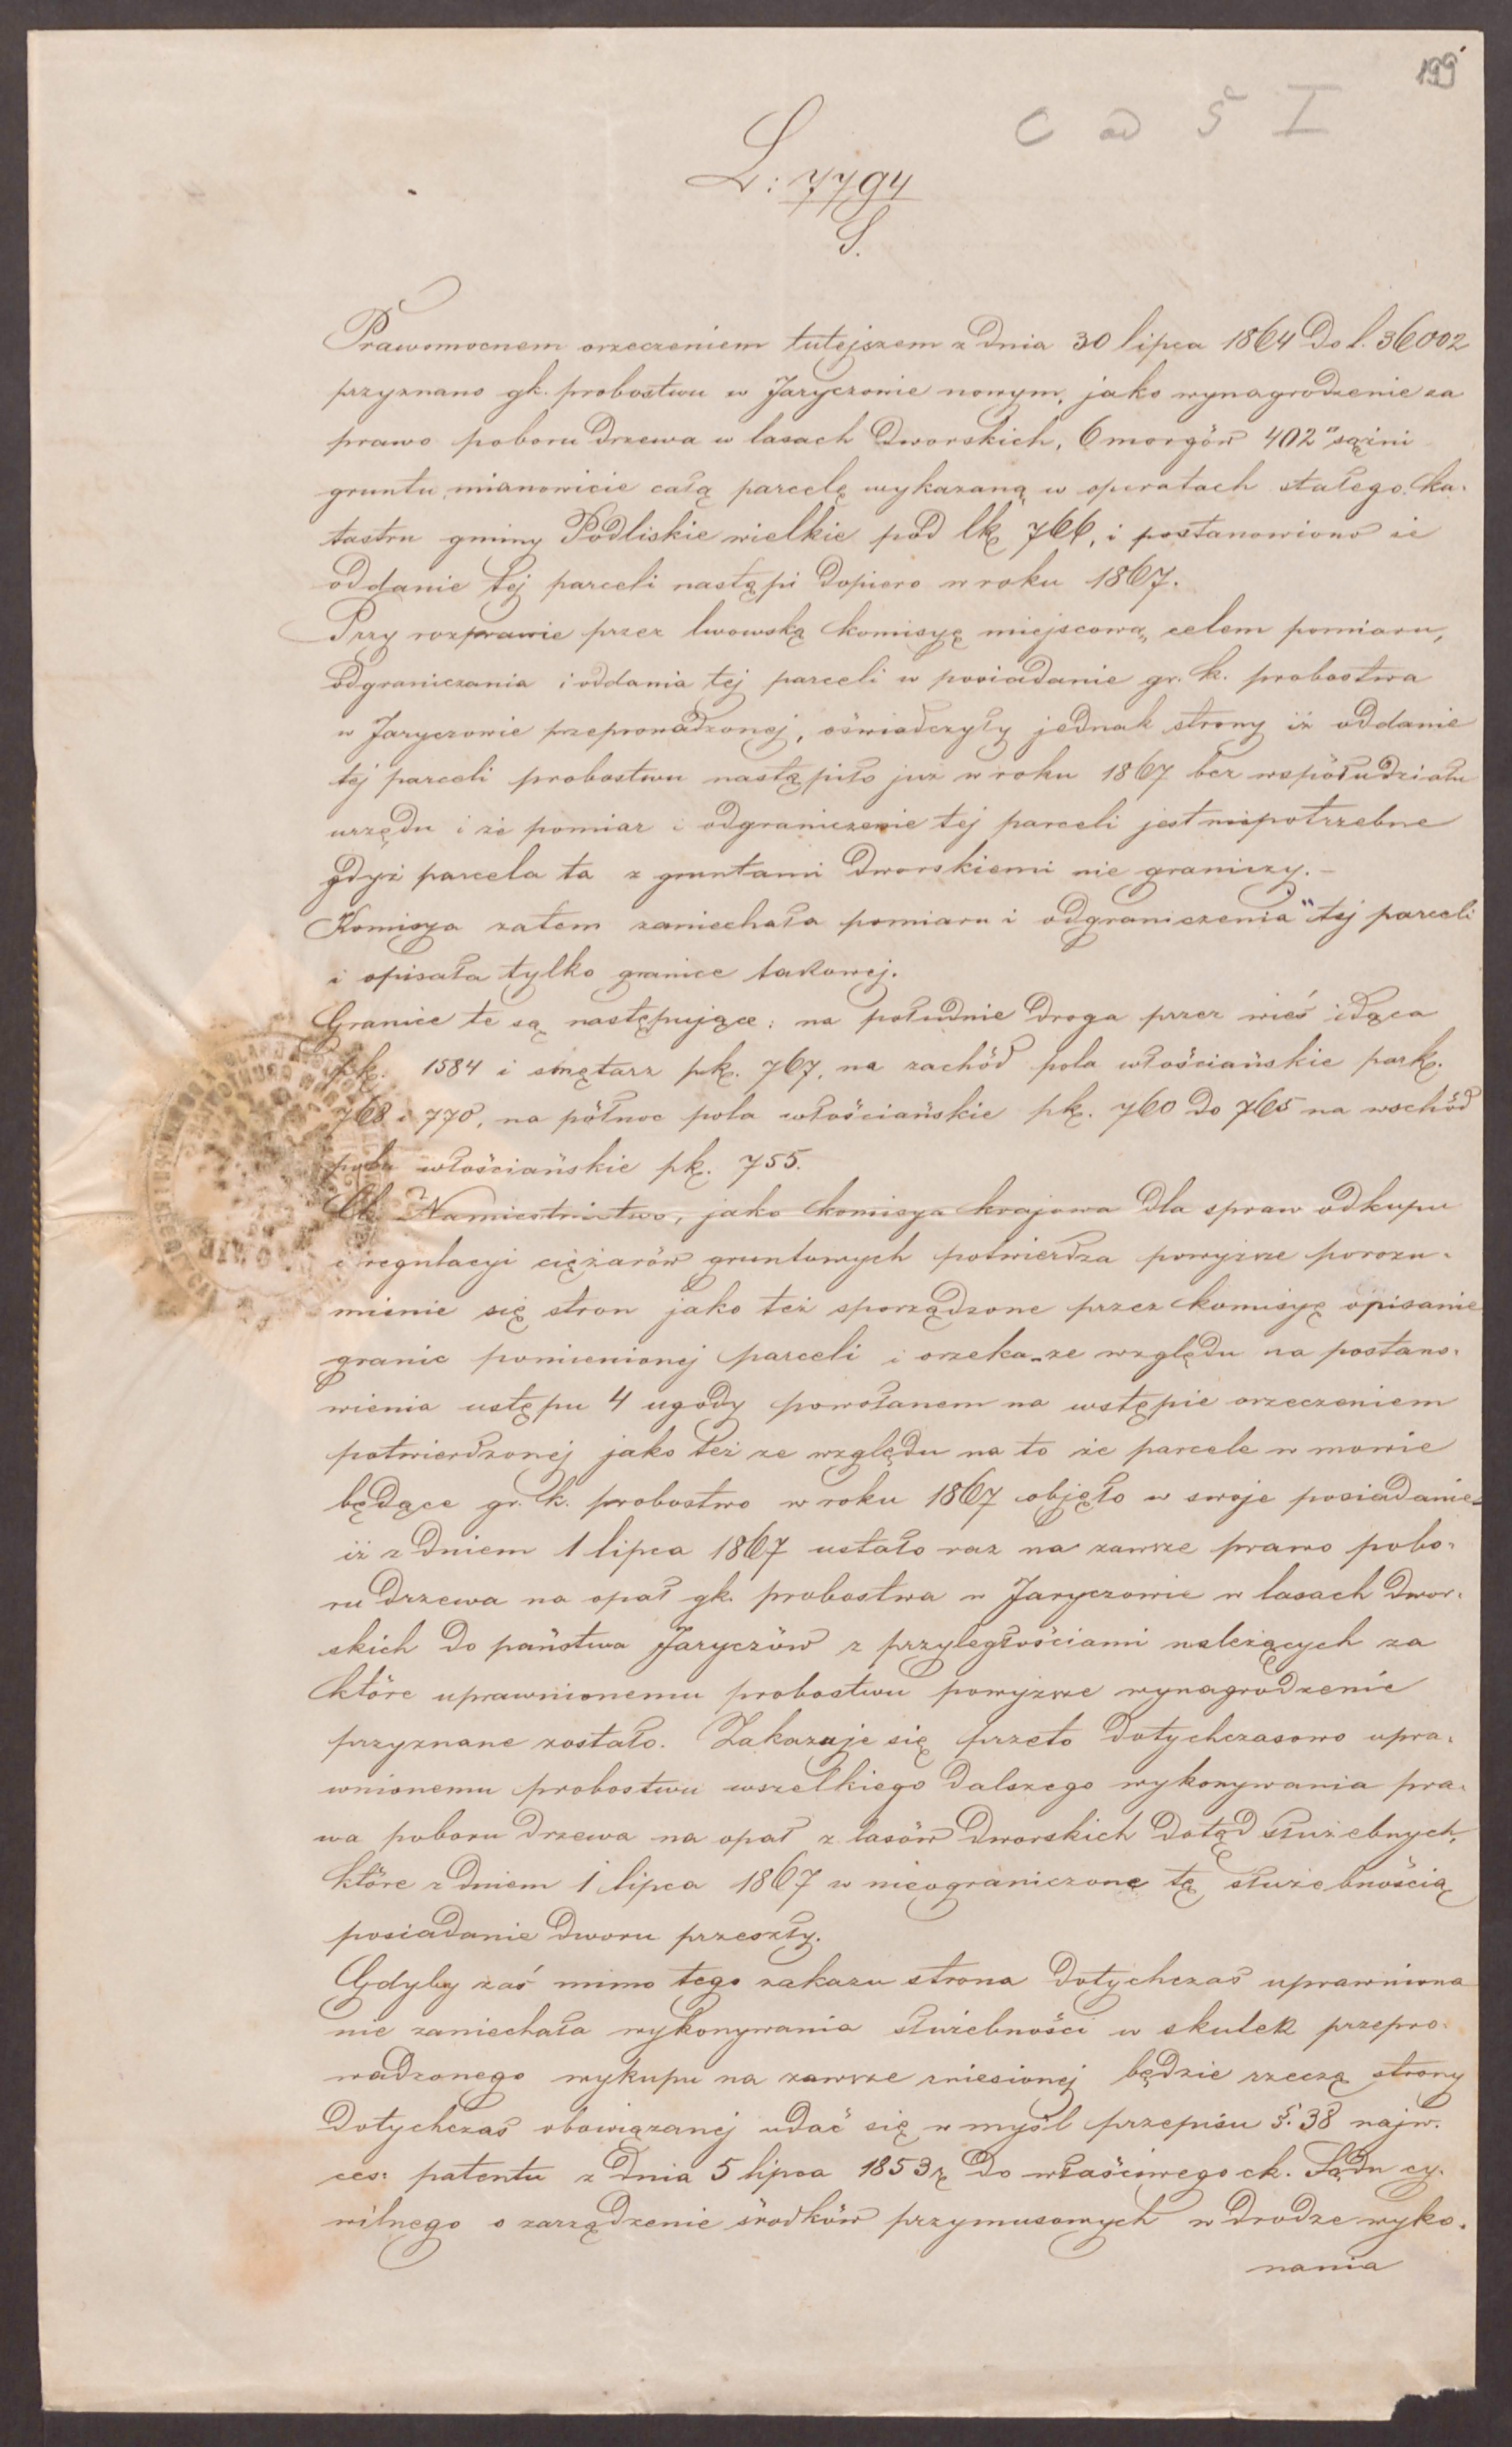 199
C ad § I
L: 7794
S.
Prawomocnem orzeczeniem tutejszem z dnia 30 lipca 1864 do l. 36002
przyznano gk. probostwu w Jaryczowie nowym, jako wynagrodzenie za
prawo poboru drzewa w lasach dworskich, 6 morgów 402° sążni
gruntu, mianowicie całą parcelę wykazaną w operatach stałego ka-
tastru gminy Podliskie wielkie pod lk. 766, i postanowiono że
oddanie tej parceli nastąpi dopiero w roku 1867.
Przy rozprawie przez lwowską komisyę miejscową, celem pomiaru,
odgraniczania i oddania tej parceli w posiadanie gr. k. probostwa
w Jaryczowie przeprowadzonej, oświadczyły jednak strony iż oddanie
tej parceli probostwu nastąpiło już w roku 1867 bez współudziału
urzędu i że pomiar i odgraniczenie tej parceli jest niepotrzebne
gdyż parcela ta z gruntami dworskiemi nie graniczy. -
Komisya zatem zaniechała pomiaru i odgraniczenia tej parceli
i opisała tylko granice takowej.
Granice te są następujące: na południe droga przez wieś idąca
pk. 1584 i smętarz pk. 767, na zachód pola włościańskie park.
768 i 770, na północ pola włościańskie pk. 760 do 765 na wschód
pola włościańskie pk. 755.
Ck. Namiestnictwo, jako komisya krajowa dla spraw odkupu
i regulacyi ciężarów gruntowych potwierdza powyższe porozu-
mienie się stron jako też sporządzone przez komisyę opisanie
granic pomienionej parceli i orzeka ze względu na postano-
wienia ustępu 4 ugody powołanem na wstępie orzeczeniem
potwierdzonej jako też ze względu na to że parcele w mowie
będące gr. k. probostwo w roku 1867 objęło w swoje posiadanie
iż z dniem 1 lipca 1867 ustało raz na zawsze prawo pobo-
ru drzewa na opał gk. probostwa w Jaryczowie w lasach dwor-
skich do państwa Jaryczów z przyległościami należących za
które uprawnionemu probostwu powyższe wynagrodzenie
przyznane zostało. Zakazuje się przeto dotychczasowo upra-
wnionemu probostwu wszelkiego dalszego wykonywania pra-
wa poboru drzewa na opał z lasów dworskich dotąd służebnych,
które z dniem 1 lipca 1867 w nieograniczone tę służebnością
posiadanie dworu przeszły.
Gdyby zaś mimo tego zakazu strona dotychczas uprawniona
nie zaniechała wykonywania służebności w skutek przepro-
wadzonego wykupu na zawsze zniesionej będzie rzeczą strony
dotychczas obowiązanej udać się w myśl przepisu §. 38 najw.
ces: patentu z dnia 5 lipca 1853 r. do właściwego ck. Sądu cy-
wilnego o zarządzenie środków przymusowych w drodze wyko-
nania